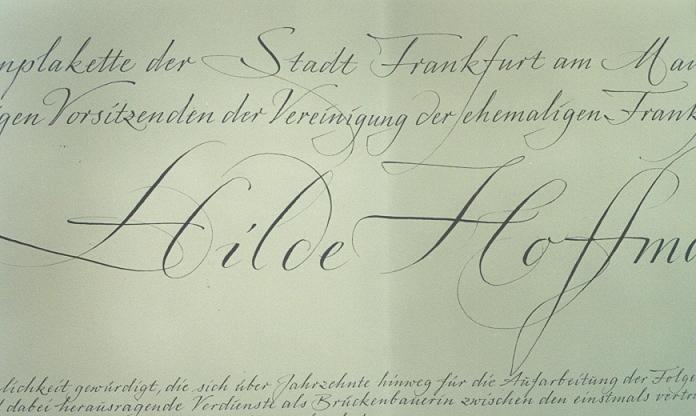 nplakette der Stadt Frankfurt am Main
igen Vorsitzenden der Vereinigung der ehemaligen Frank
Hilde Hoffma
lichkeit gewürdigt, die sich über Jahrzehnte hinweg für die Aufarbeitung der Folge
d dabei herausragende Verdienste als Brückenbauerin zwischen den einstmals vertr